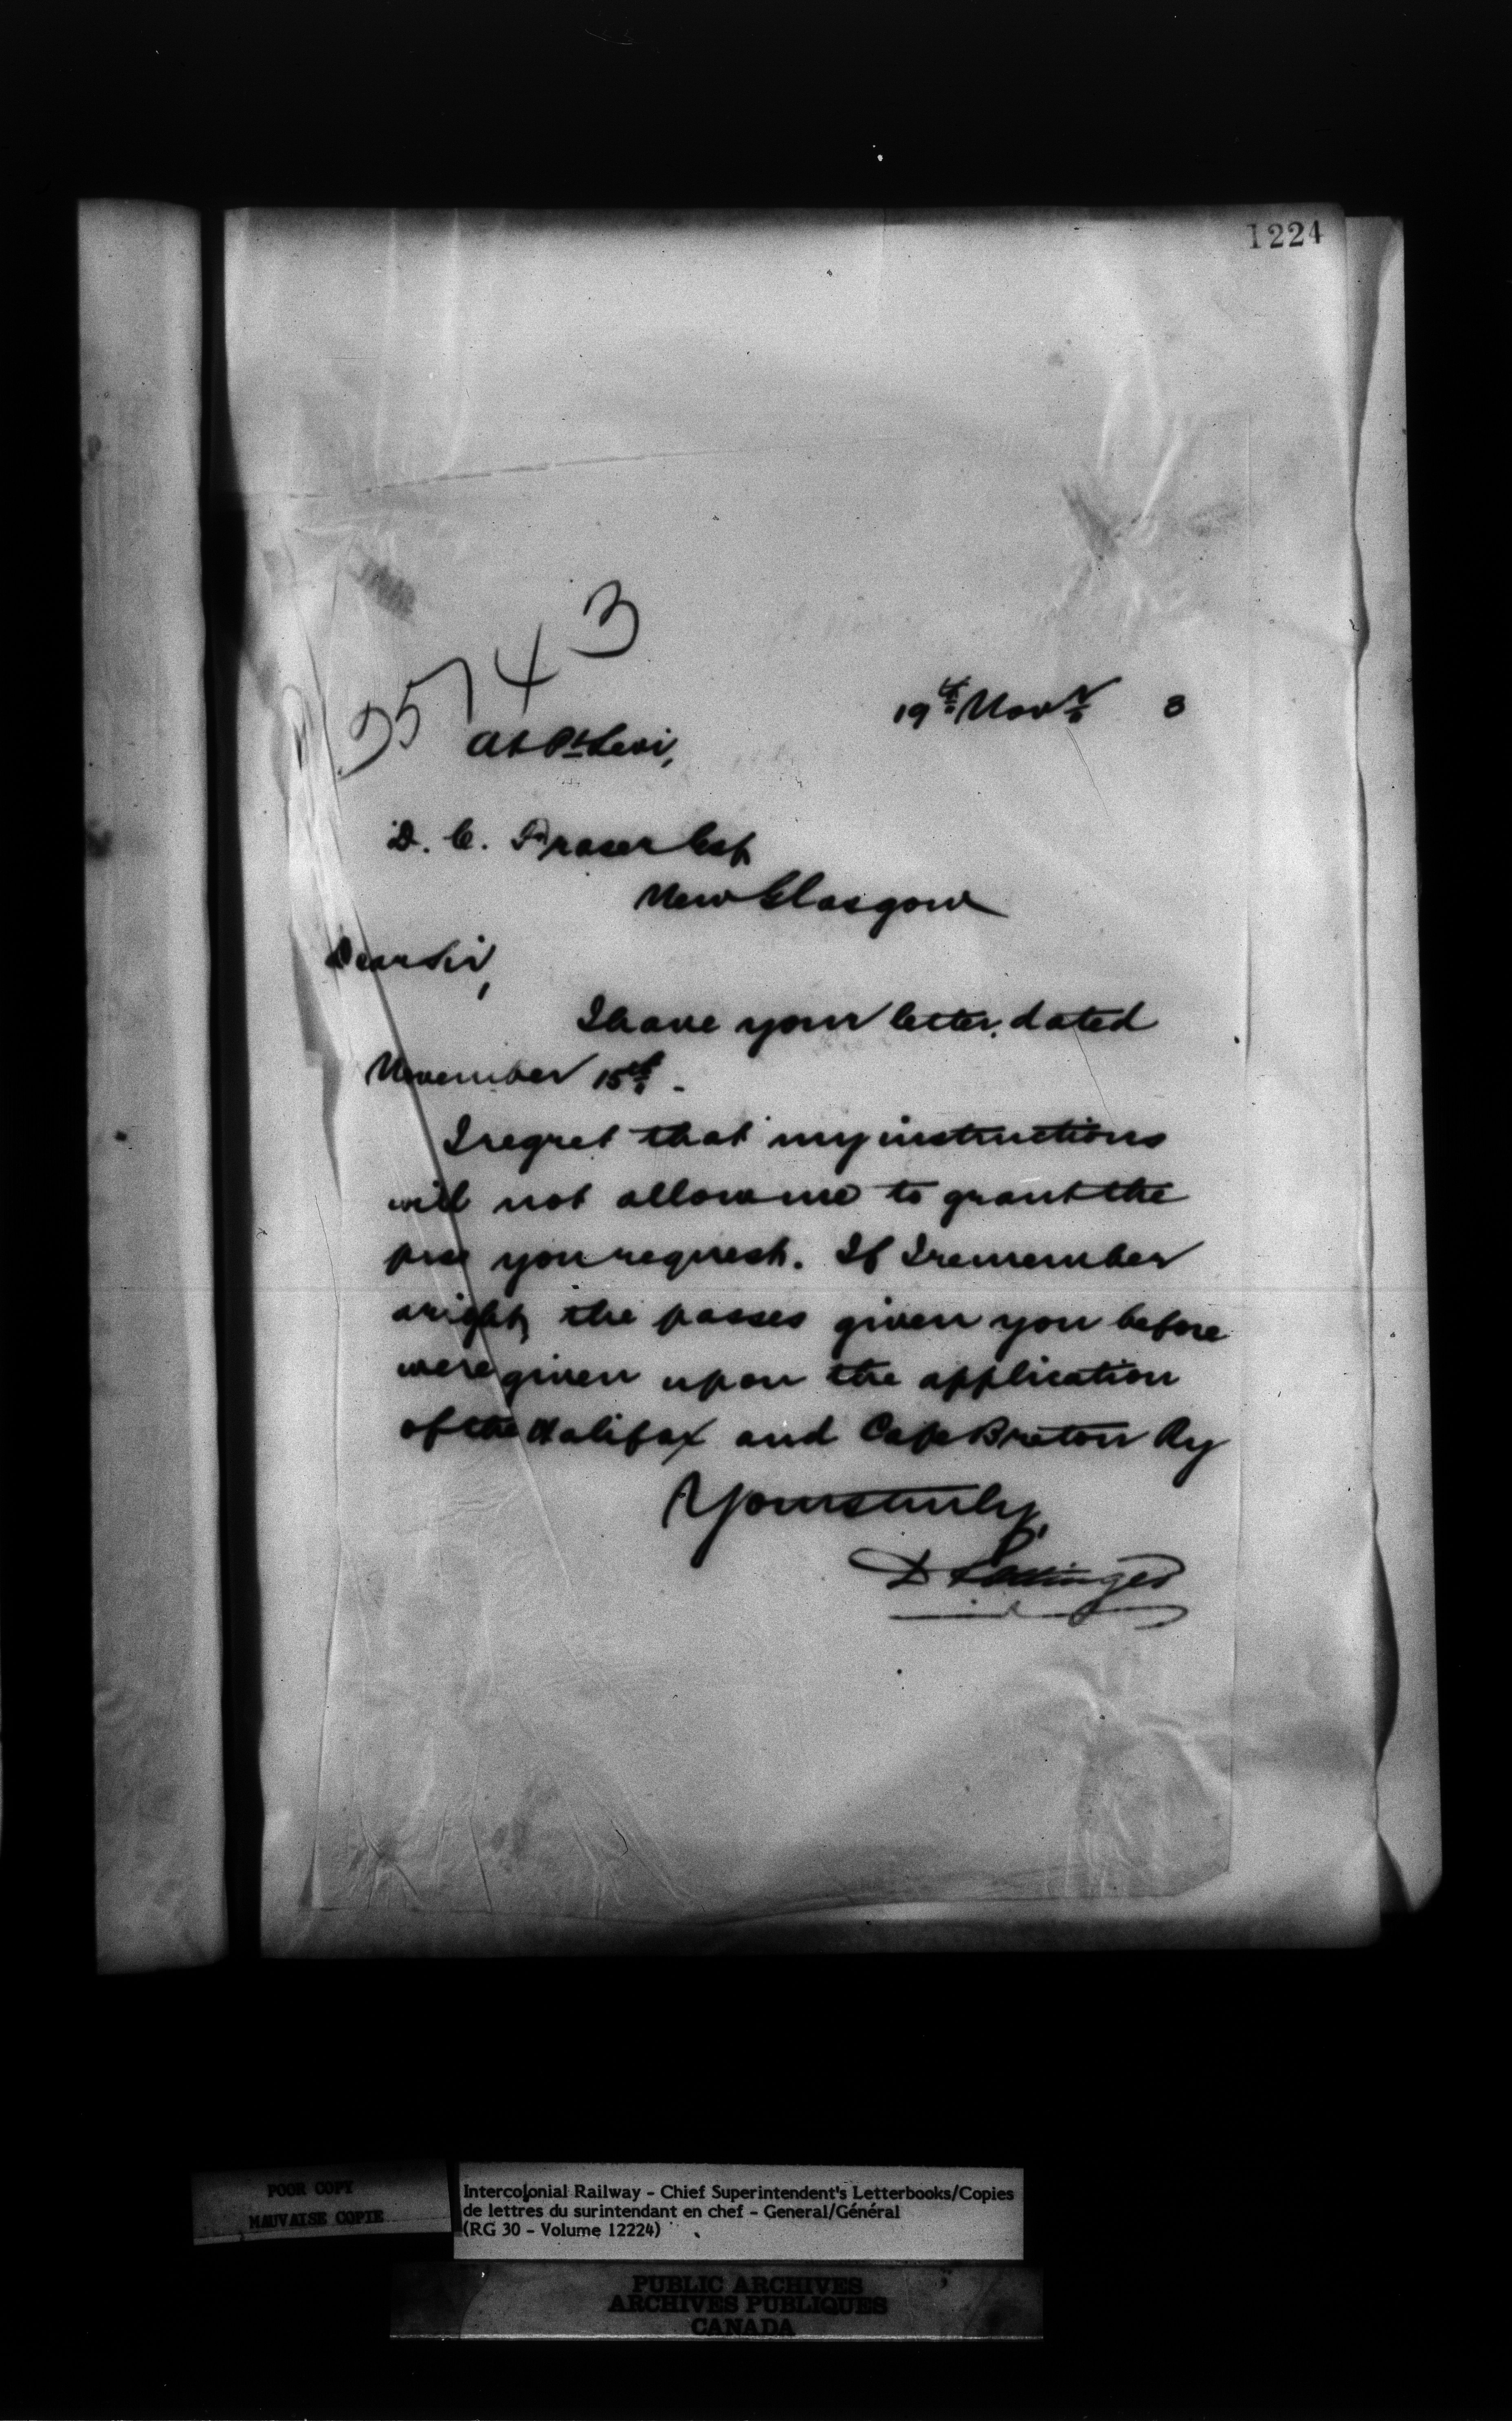 1224
35743
19th Novr 3
At Pt Levi,
D. C. Fraser Esq
New Glasgow
Dear Sir,
I have your letter, dated
November 15th.
I regret that my instructions
will not allow me to grant the
pass you request. If I remember
aright, the passes given you before
were given upon the application
of the Halifax and Cape Breton Ry
Yours truly,
D Pottinger
POOR COPY
MAUVAISE COPIE
Intercolonial Railway - Chief Superintendent's Letterbooks/Copies
de lettres du surintendant en chef - General/Général
(RG 30 - Volume 12224)
PUBLIC ARCHIVES
ARCHIVES PUBLIQUES
CANADA